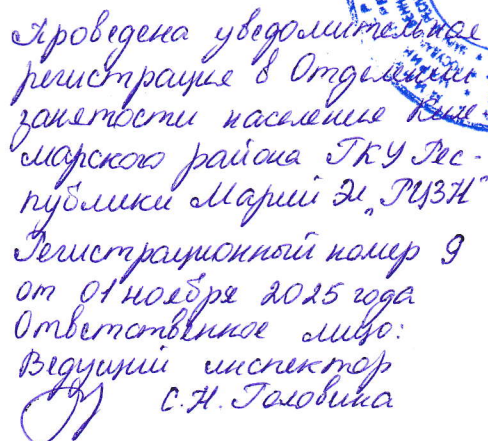 Проведена уведомительная
регистрация в Отделении
занятости населения Киле
марского района ГКУ Рес-
публики Марий Эл „РЦЗН"
Регистрационный номер 9
от 01 ноября 2025 года
Ответственное лицо:
Ведущий инспектор
С.Н. Головина